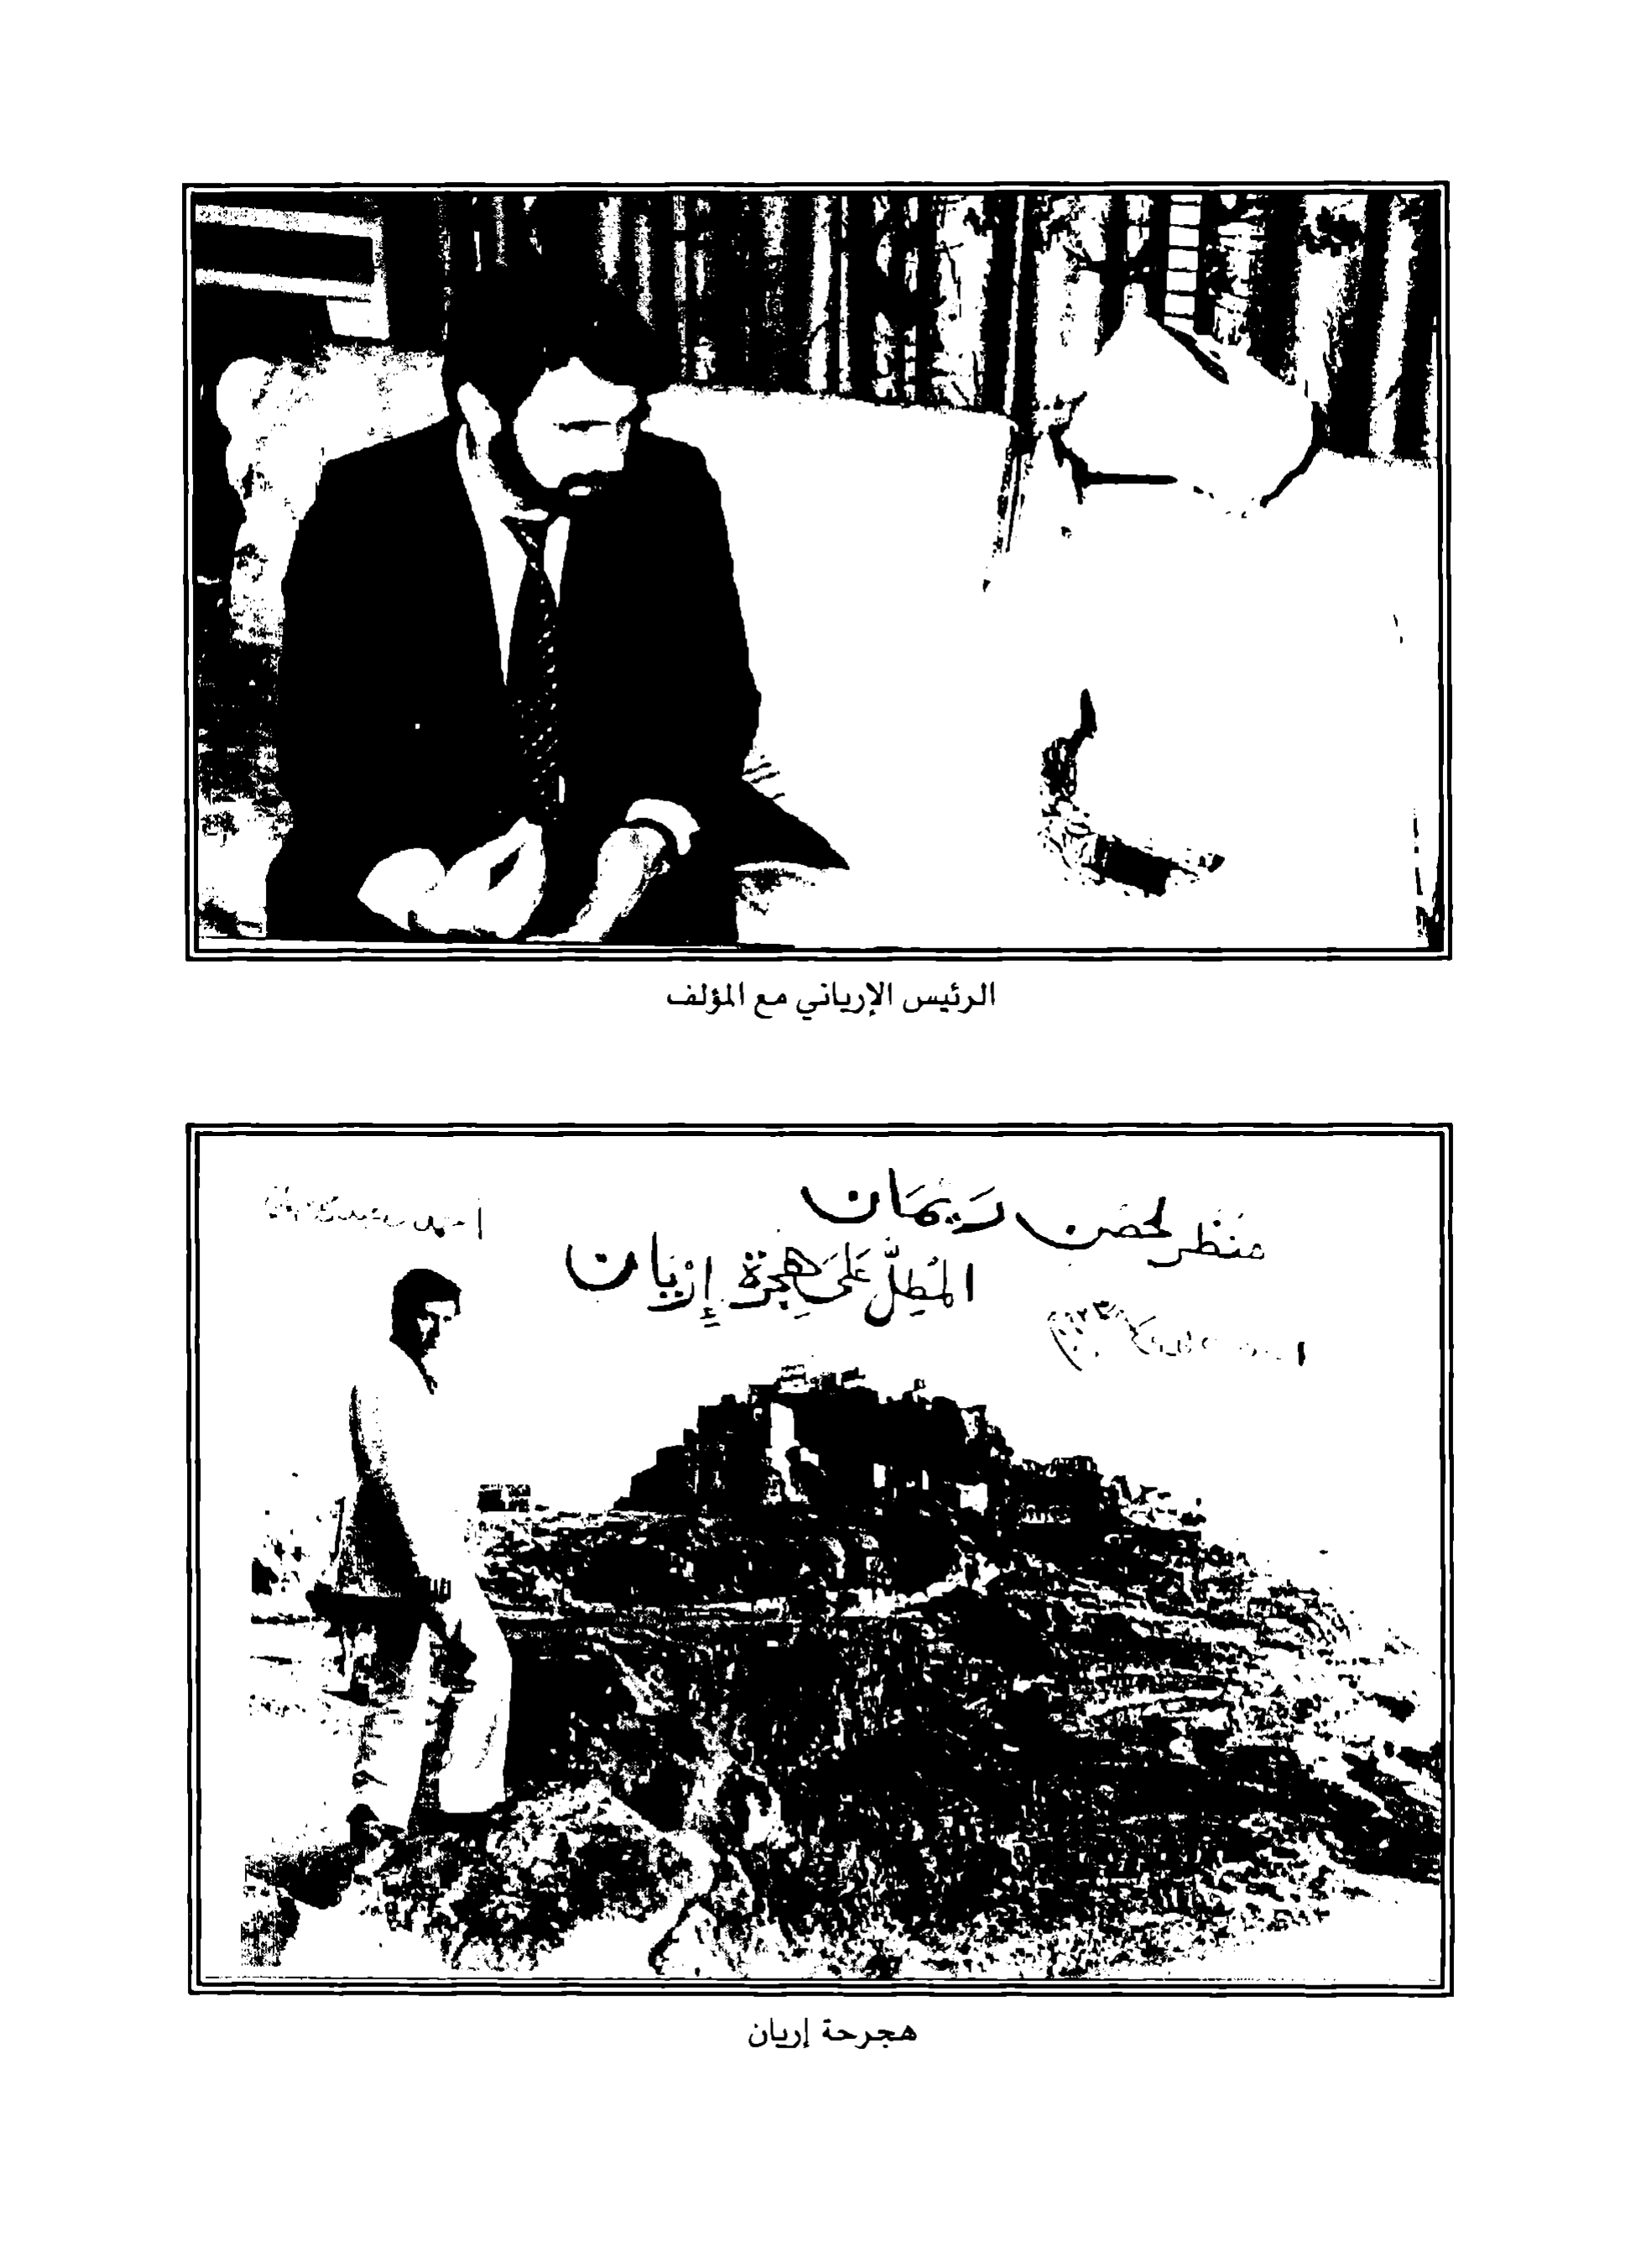 الرئيس الإرياني مع المؤلف
مَنْظَر لحصن رَيمَان
المُطِلّ عَلَى هِجرَة إرْيَان
هجرحة إريان